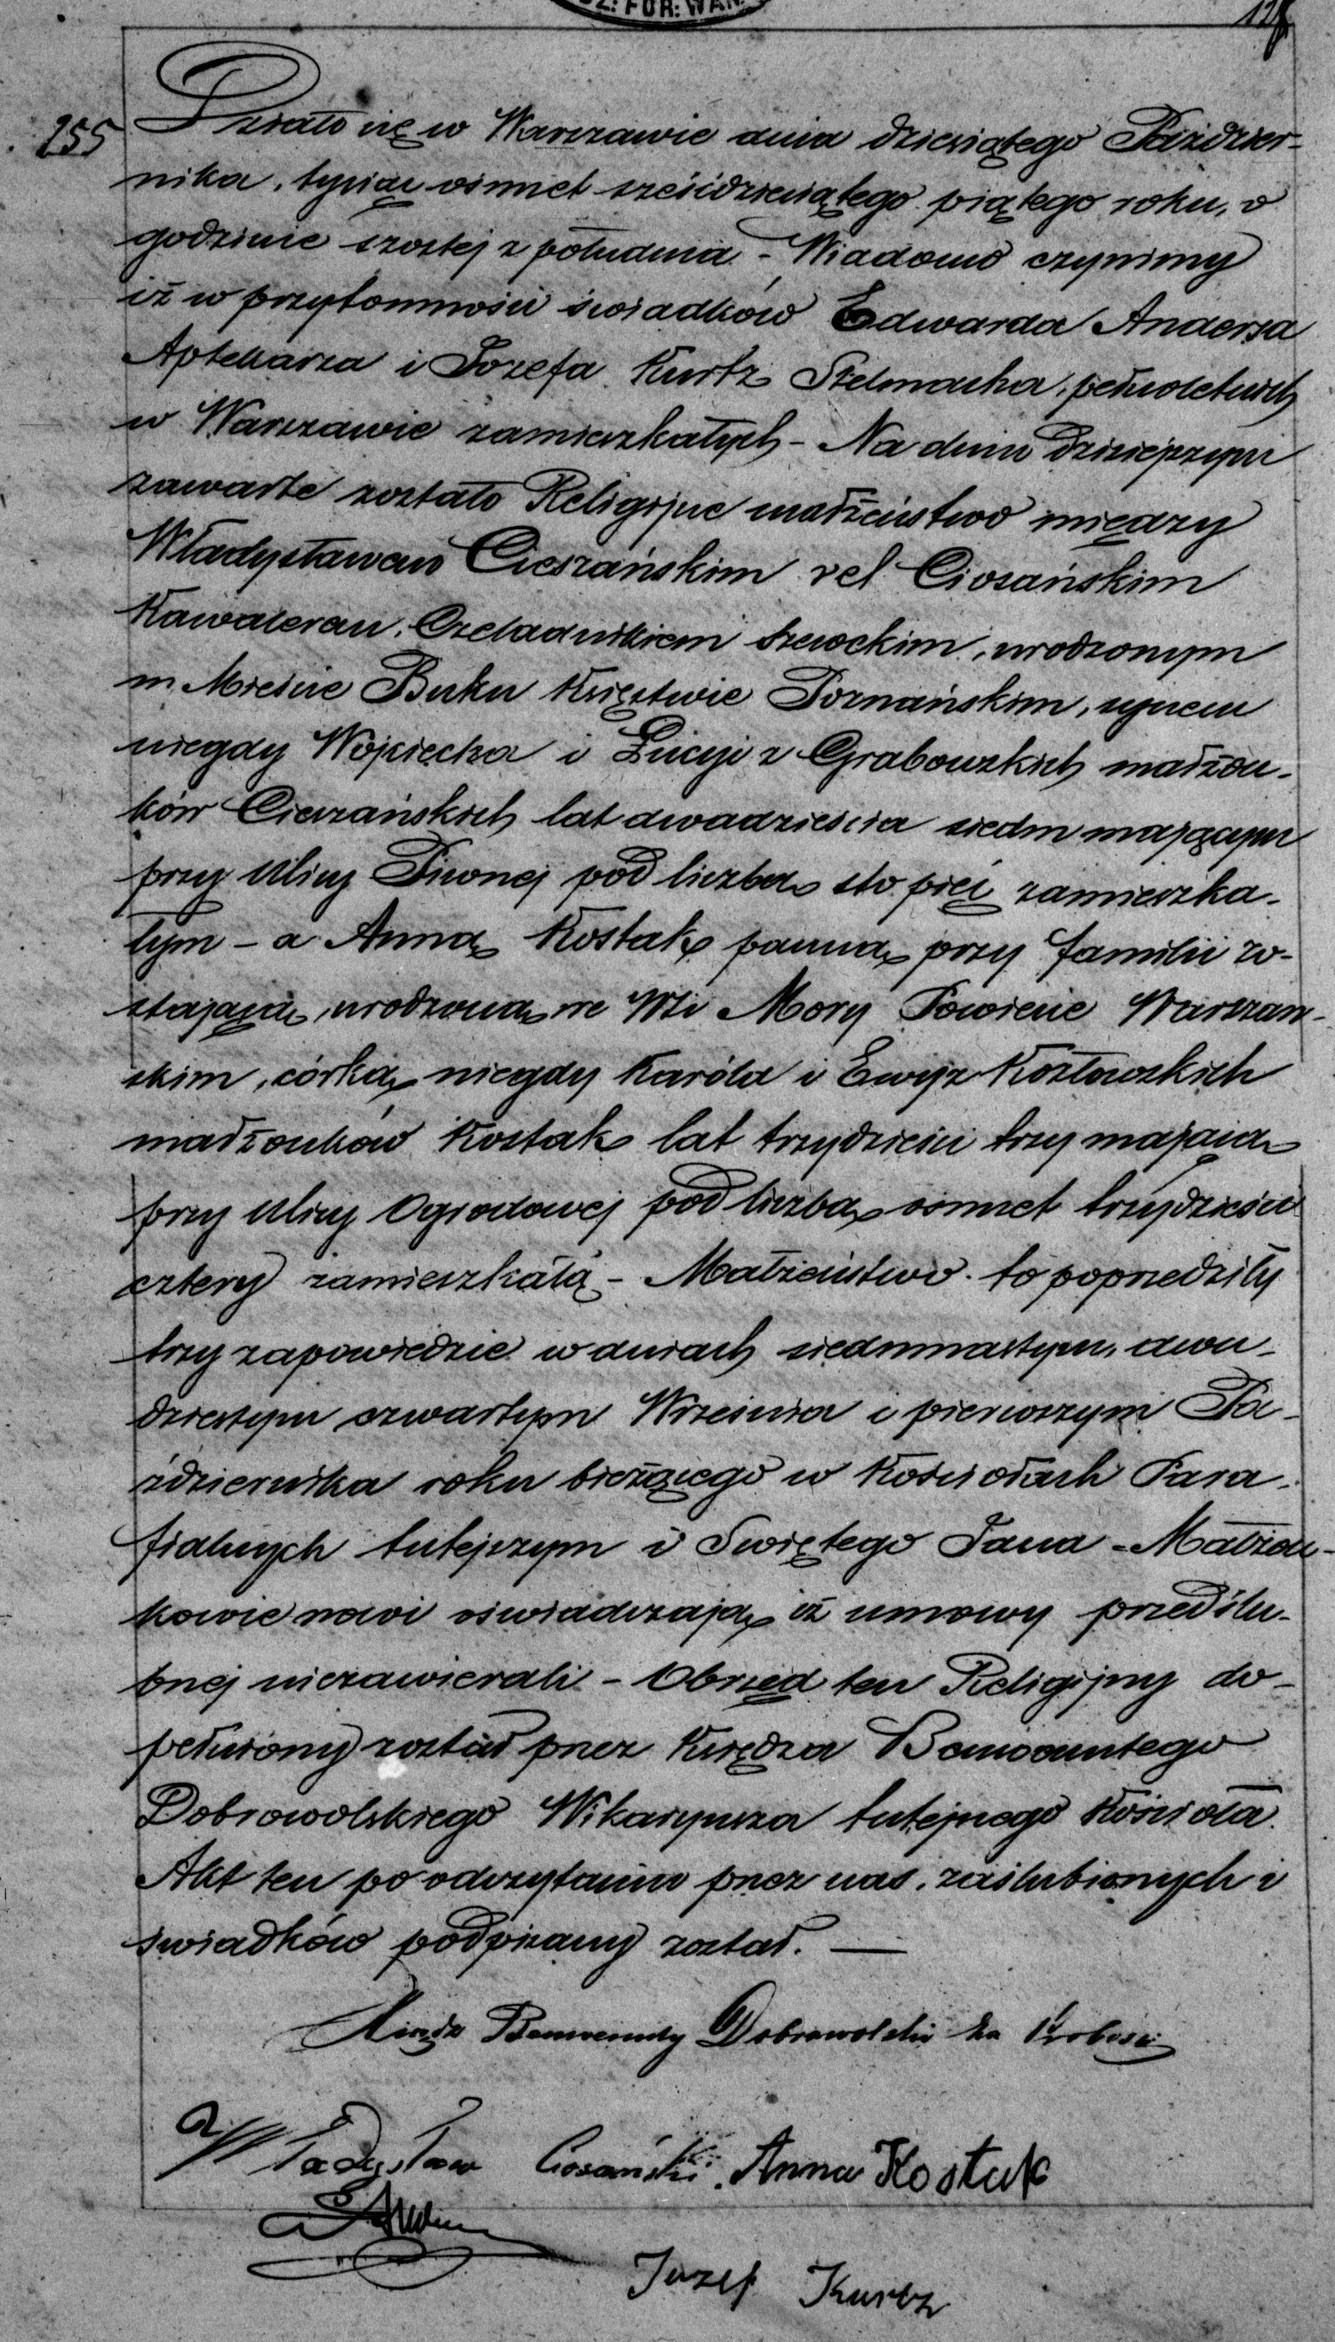 DZ: FOR: WAR.
128
255
Działo się w Warszawie dnia dziesiątego Paździer-
nika, tysiąc ośmset sześćdziesiątego piątego roku, o
godzinie szóstej z południa - Wiadomo czynimy
iż w przytomności świadków Edwarda Andersa
Aptekarza i Józefa Kurtz Stelmacha, pełnoletnich
w Warszawie zamieszkałych - Na dniu dzisiejszym
zawarte zostało Religijne małżeństwo między
Władysławem Cieszańskim vel Ciosańskim
Kawalerem, Czeladnikiem szewckim, urodzonym
w Mieście Buku Księstwie Poznańskim, synem
niegdy Wojciecha i Łucyi z Grabowskich małżon-
ków Cieszańskich lat dwadzieścia siedm mającym
przy Ulicy Piwnej pod liczbą sto pięć zamieszka-
łym - a Anną Kostak panną przy familii zo-
stającą, urodzoną we Wsi Mory Powiecie Warszaw-
skim, córką niegdy Karóla i Ewy z Kozłowskich
małżonków Kostak lat trzydzieści trzy mającą
przy Ulicy Ogrodowej pod liczbą ośmset trzydzieści
cztery zamieszkałą - Małżeństwo to poprzedziły
trzy zapowiedzie w dniach siedmnastym, dwu-
dziestym czwartym Września i pierwszym Pa-
ździernika roku bieżącego w Kościołach Para-
fialnych tutejszym i Świętego Jana - Małżon-
kowie nowi oświadczają iż umowy przedślu-
bnej niezawierali - Obrzęd ten Religijny do-
pełniony został przez Księdza
Dobrowolskiego Wikaryusza tutejszego Kościoła.
Akt ten po odczytaniu przez nas, zaślubionych i
świadków podpisany został. —
Ksiądz Benwenuty Dobrowolski za Proboszcza
Władysław Cosański. Anna Kostak
Jozef Kurtz